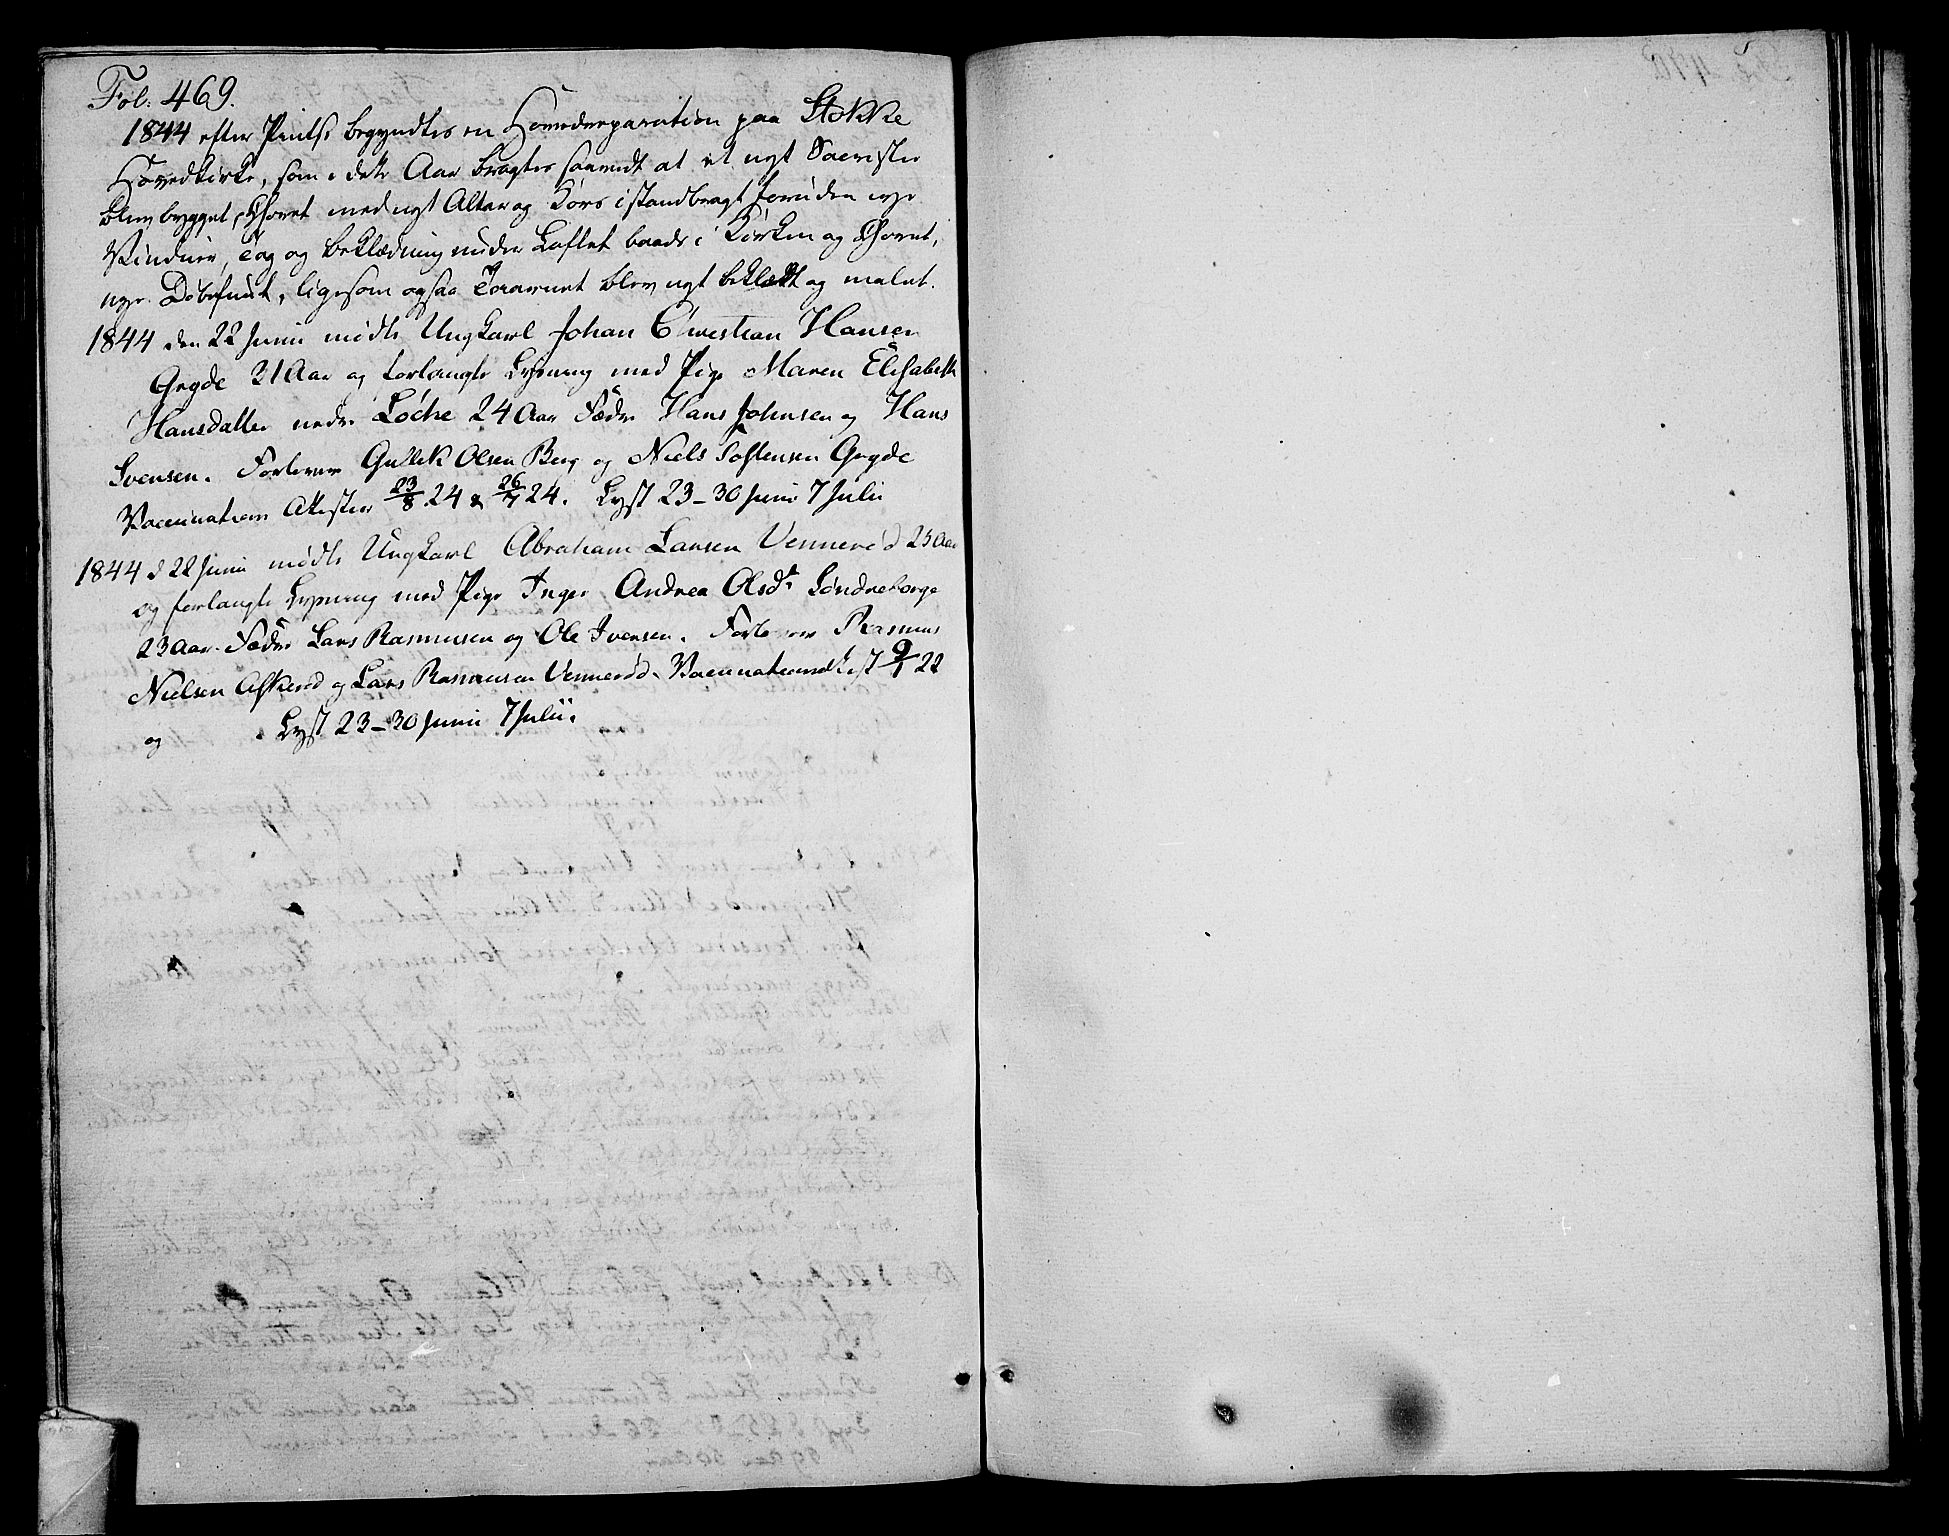 Fol: 469.
1844 efter Pintse begyndtes en Hovedreparation paa Stokke
Hovedkirke, som i dette Aar bragtes saavidt at et nyt Sacristie
blev bygget, Choret med nyt Alter og Kors istandbragt foruden nye
Vinduer, Tag og Beklædning under Loftet baade i Kirken og Choret,
nye Døbefunt, ligesom ogsaa Taarnet blev nyt beklædt og malet.
1844 den 22 Juni mødte Ungkarl Johan Christian Hansen
Gryde 21 Aar og forlangte Lysning med Pige Maren Elisabeth
Hansdatter nedre Løche 24 Aar Fædre Hans Johnsen og Hans
Svensen. Forlovere Gullik Olsen Berg og Niels Sostensen Gryde
Vaccinations Attester 23/8 24 & 26/7 24. Lyst 23 - 30 Juni 7 Julii
1844 d 22 Juni mødte Ungkarl Abraham Larsen Vennerød 25 Aar
og forlangte Lysning med Pige Inger Andrea Olsdt Søndreborge
23 Aar. Fædre Lars Rasmusen og Ole Iversen. Forlovere Rasmus
Nielsen Askerød og Lars Rasmusen Vennerød. Vaccinationsattest 9/1 22
og . Lyst 23 - 30 Juni 7 Julii.